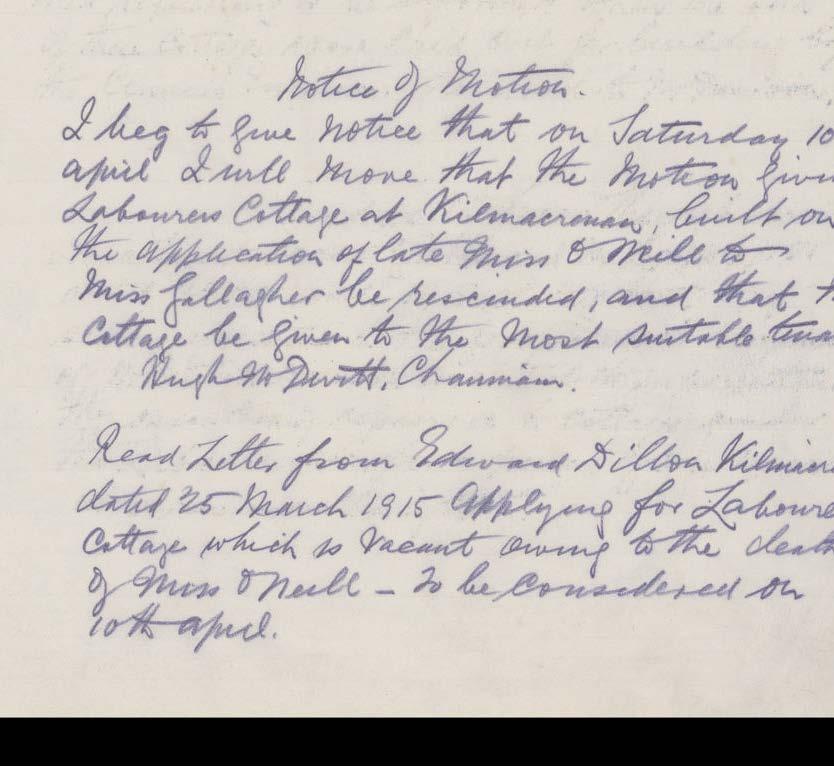 Notice of Motion.
I beg to give notice that on Saturday 10
april I will move that the Motion Givin
Labourers Cottage at Kilmacrenan, built on
the application of late Miss O Neill to
Miss Gallagher be rescinded, and that t
Cottage be given to the most suitable tena
Hugh McDevitt, Chairman.
Read Letter from Edward Dillon Kilmacre
dated 25 March 1915 Applying for Laboure
Cottage which is Vacant owing to the death
of Miss O Neill – To be Considered on
10th april.